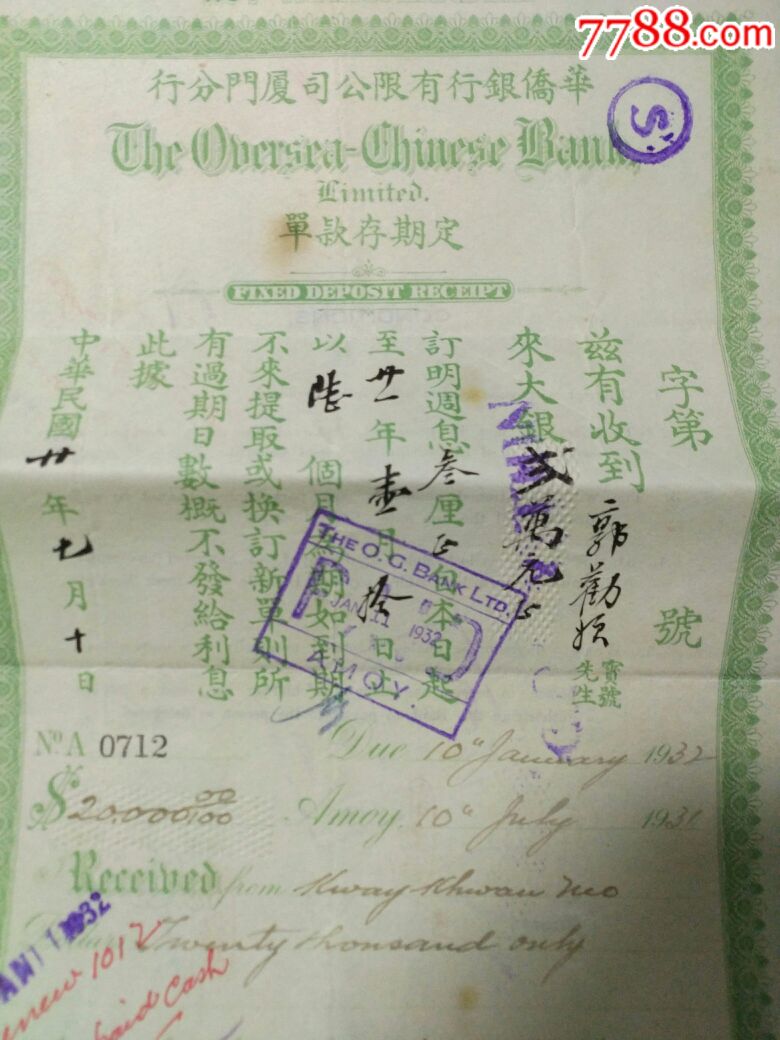 7788.com
華僑銀行有限公司厦門分行
S.
The Oversea-Chinese Bank,
Limited.
定期存款單
FIXED DEPOSIT RECEIPT
字第 號
兹有收到郭勸 寶號先生
來大銀弍萬元正
訂明週息叁厘正自本日起
至廿一年壹月拾日止
以陸個月為期如到期
不來提取或換訂新單則所
有過期日數概不發給利息
此據
中華民國廿年七月十日
THE O.C. BANK LTD.
PAID
JAN 11 1932
AMOY.
No. A 0712
Due 10th January 1932
$20,000 00/100
Amoy, 10th July 1931
Received from Kway Khwan
Twenty thousand only
JAN 11 1932
renew 1012
paid cash